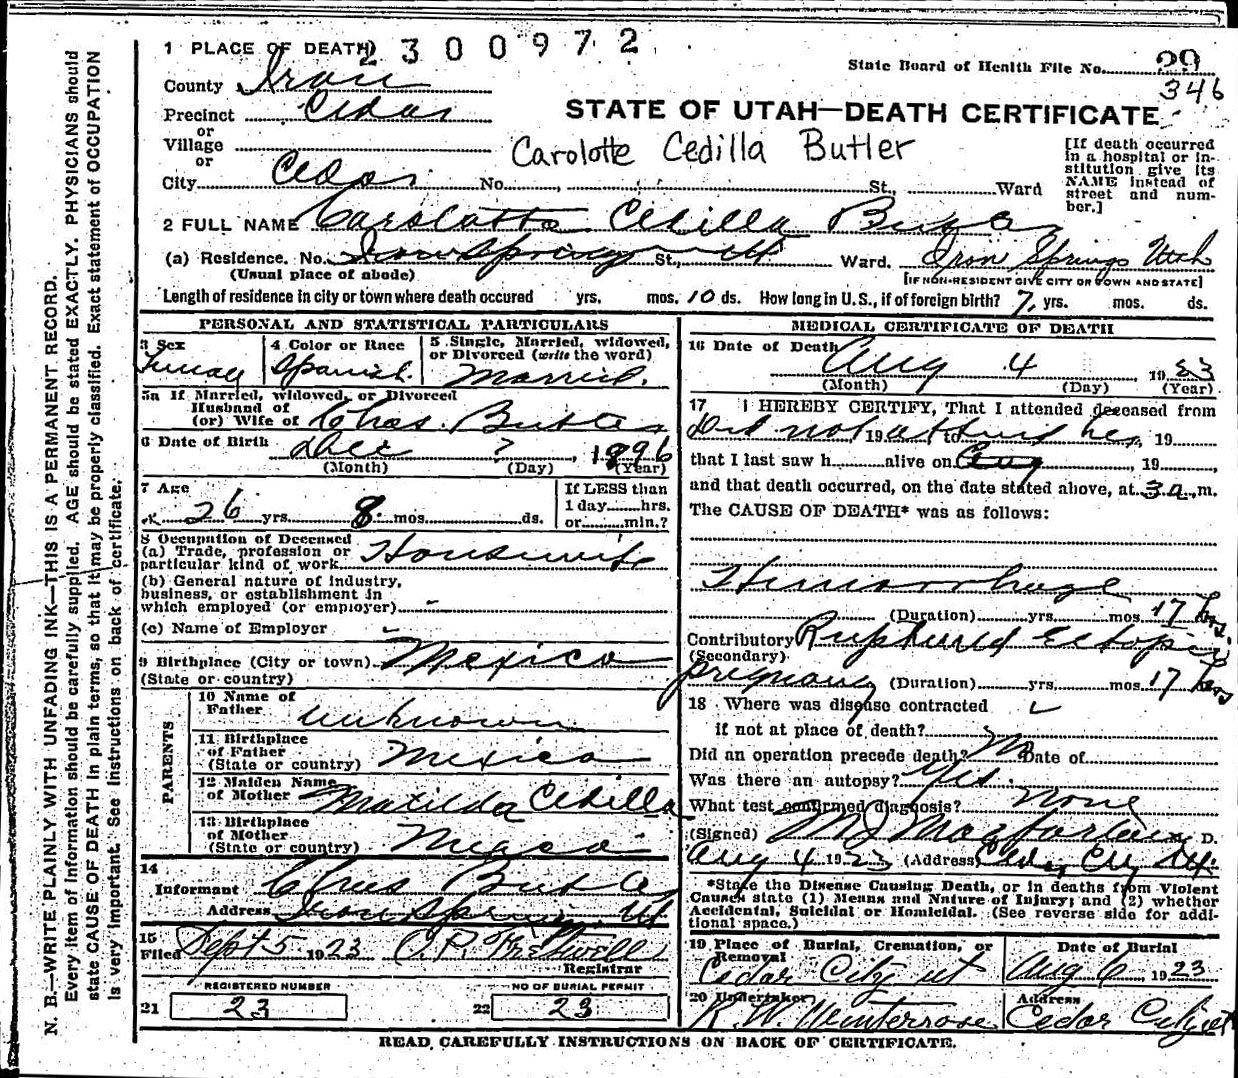 1 PLACE OF DEATH
2300972
State Board of Health File No. 29
346
County Iron
Precinct Cedar
or
Village
or
City Cedar No. St., Ward
STATE OF UTAH—DEATH CERTIFICATE
Carolotte Cedilla Butler
[If death occurred
in a hospital or in-
stitution give its
NAME instead of
street and num-
ber.]
2 FULL NAME Carolotta Cedilla Butler
(a) Residence. No. Iron Springs St., Ut Ward. Iron Springs Utah
(Usual place of abode) [IF NON-RESIDENT GIVE CITY OR TOWN AND STATE]
Length of residence in city or town where death occured yrs. mos. 10 ds. How long in U.S., if of foreign birth? 7, yrs. mos. ds.
PERSONAL AND STATISTICAL PARTICULARS
3 Sex
Female
4 Color or Race
Spanish.
5 Single, Married, widowed,
or Divorced (write the word)
Married.
5a If Married, widowed, or Divorced
Husband of
(or) Wife of Chas. Butler
6 Date of Birth Dec ? , 1896
(Month) (Day) (Year)
7 Age
26 yrs. 8 mos. ds.
If LESS than
1 day hrs.
or min.?
8 Occupation of Deceased
(a) Trade, profession or
particular kind of work Housewife
(b) General nature of industry,
business, or establishment in
which employed (or employer) -
(c) Name of Employer -
9 Birthplace (City or town) Mexico
(State or country)
PARENTS
10 Name of
Father unknown
11 Birthplace
of Father
(State or country) Mexico
12 Maiden Name
of Mother Matilda Cedilla
13 Birthplace
of Mother
(State or country) Mexico
14
Informant Chas Butler
Address Iron Springs, Ut
15
Filed Sept 5 1923
Registrar
REGISTERED NUMBER
21 23
NO OF BURIAL PERMIT
22 23
MEDICAL CERTIFICATE OF DEATH
16 Date of Death Aug 4 1923
(Month) (Day) (Year)
17 I HEREBY CERTIFY, That I attended deceased from
Did not 19 attend to her, 19
that I last saw h alive on Aug, 19
and that death occurred, on the date stated above, at 3 a.m.
The CAUSE OF DEATH* was as follows:
Hemorrhage
(Duration) yrs. mos. 17 hrs.
Contributory Ruptured Ectopic
(Secondary)
pregnancy (Duration) yrs. mos. 17 hrs
18 Where was disease contracted
if not at place of death?
Did an operation precede death? No Date of
Was there an autopsy? Yes.
What test confirmed diagnosis? None
(Signed) M J Macfarlane M. D.
Aug 4 1923 (Address) Cedar City Ut.
*State the Disease Causing Death, or in deaths from Violent
Causes state (1) Means and Nature of Injury; and (2) whether
Accidental, Suicidal or Homicidal. (See reverse side for addi-
tional space.)
19 Place of Burial, Cremation, or
Removal
Cedar City ut
Date of Burial
Aug 6 1923
20 Undertaker
K. W. Winterrose
Address
Cedar City ut
READ CAREFULLY INSTRUCTIONS ON BACK OF CERTIFICATE.
N. B.—WRITE PLAINLY WITH UNFADING INK—THIS IS A PERMANENT RECORD.
Every item of information should be carefully supplied. AGE should be stated EXACTLY. PHYSICIANS should
state CAUSE OF DEATH in plain terms, so that it may be properly classified. Exact statement of OCCUPATION
is very important. See instructions on back of certificate.